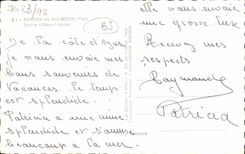 HYERES les PALMIERS (Var)
23/92
BJ
De la côte d'azur
je vous envoie mes
bons souvenirs de
vacances. le temps
est splendide.
Patricia a une mine
splendide et s'amuse
beaucoup à la mer.
Elle vous envoie
une grosse bise
Recevez mes
respects
Raymonde
Patricia